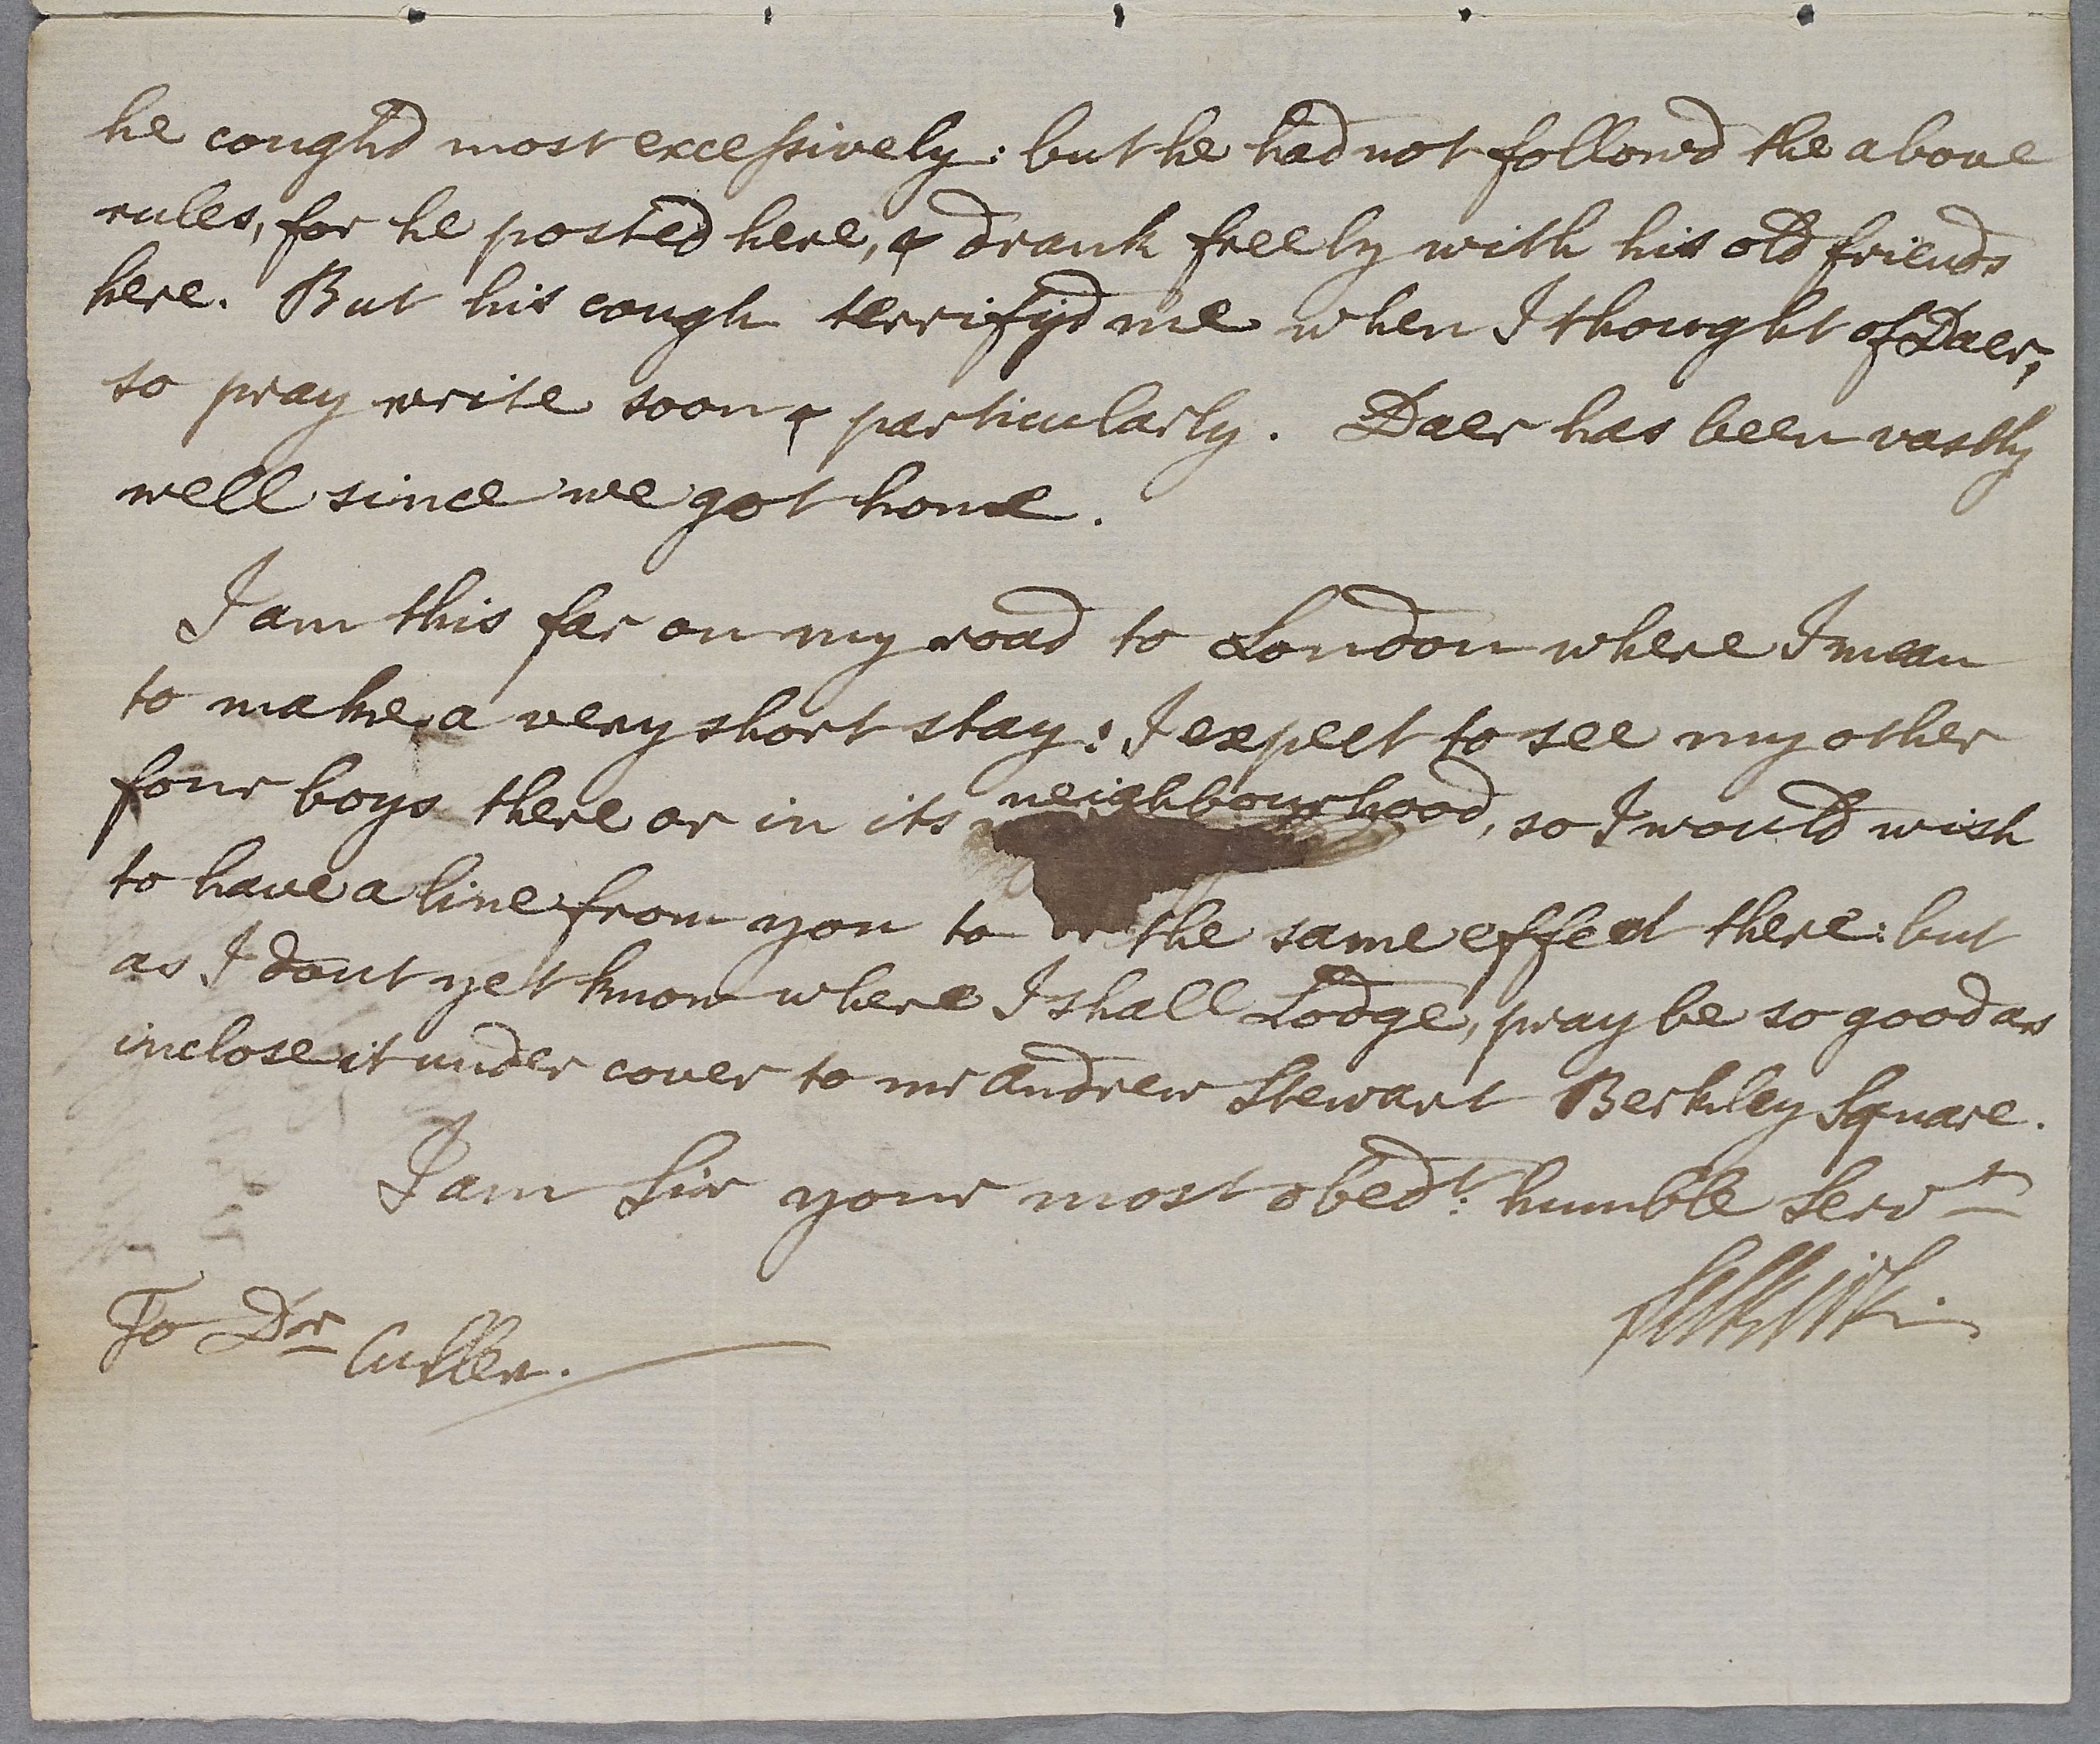 he cough'd most excessively: but he had not follow'd the above
rules, for he posted here, & drank freely with his old friends
here. But his cough terrify'd me when I thought of Daer,
so pray write soon & particularly. Daer has been vastly
well since we got home.
I am this far on my road to London where I mean
to make a very short stay: I expect to see my other
four boys there or in its neighbourhood, so I would wish
to have a line from you to the same effect there: but
as I dont yet know where I shall Lodge, pray be so good as
inclose it under cover to mr Andrew Stewart Berkley Square.
I am Sir your most obedt: humble Servt
Selkirk.
To Dr Cullen.